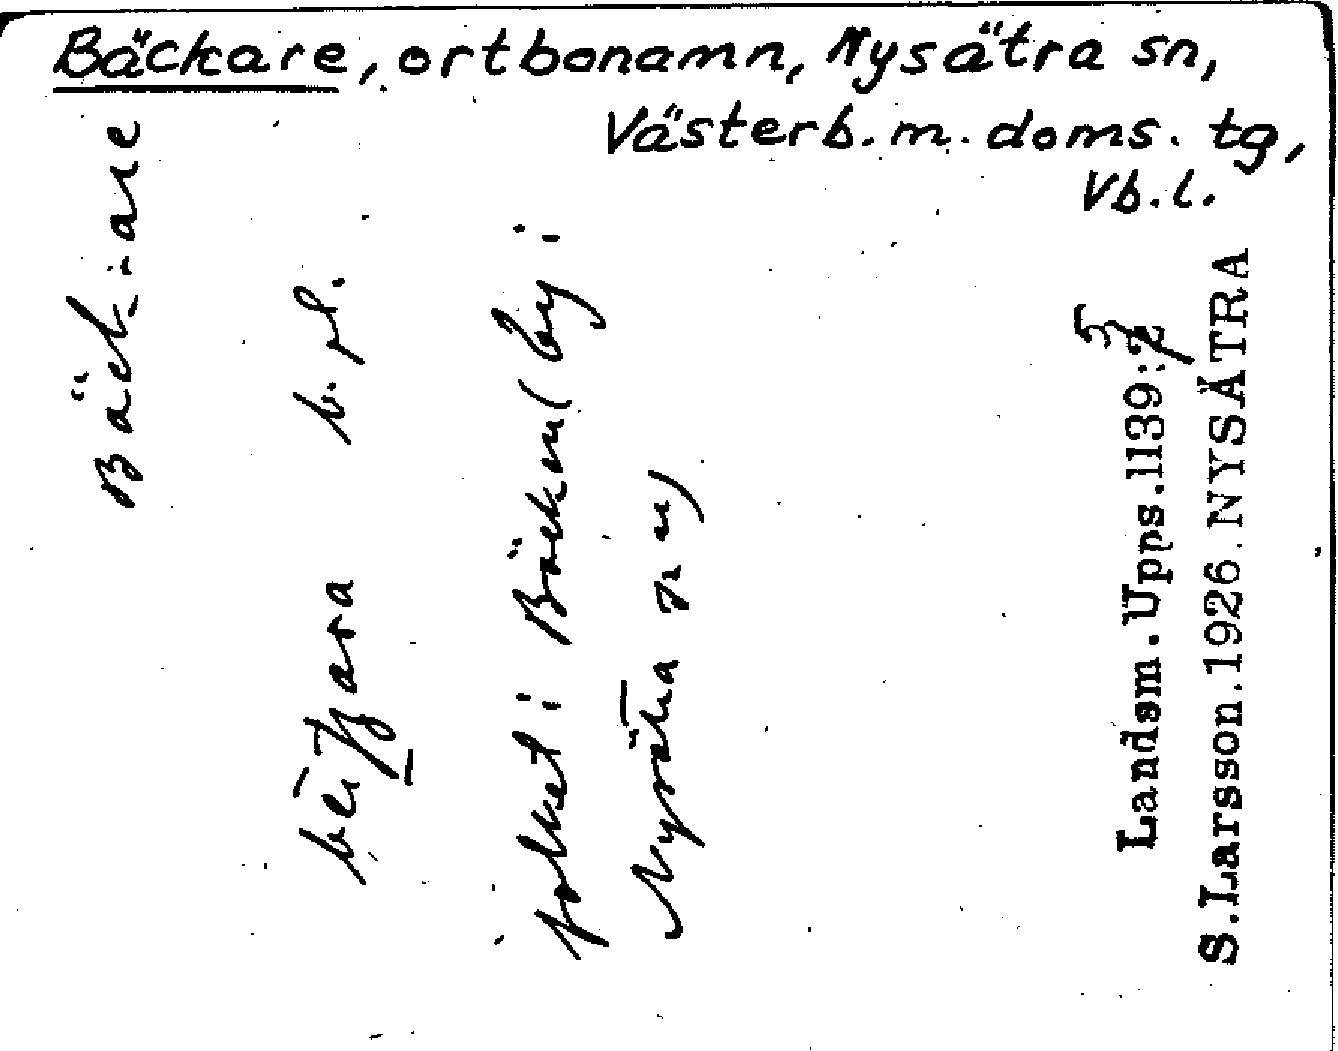 Bäckare, ortbonamn, Nysätra sn,
Västerb. m. doms. tg,
Vb.l.
Bäck-are
b. pl.
folket i Bäcken (by i
Nysätra sn)
Landsm. Upps. 1139:
S. Larsson. 1926. NYSÄTRA